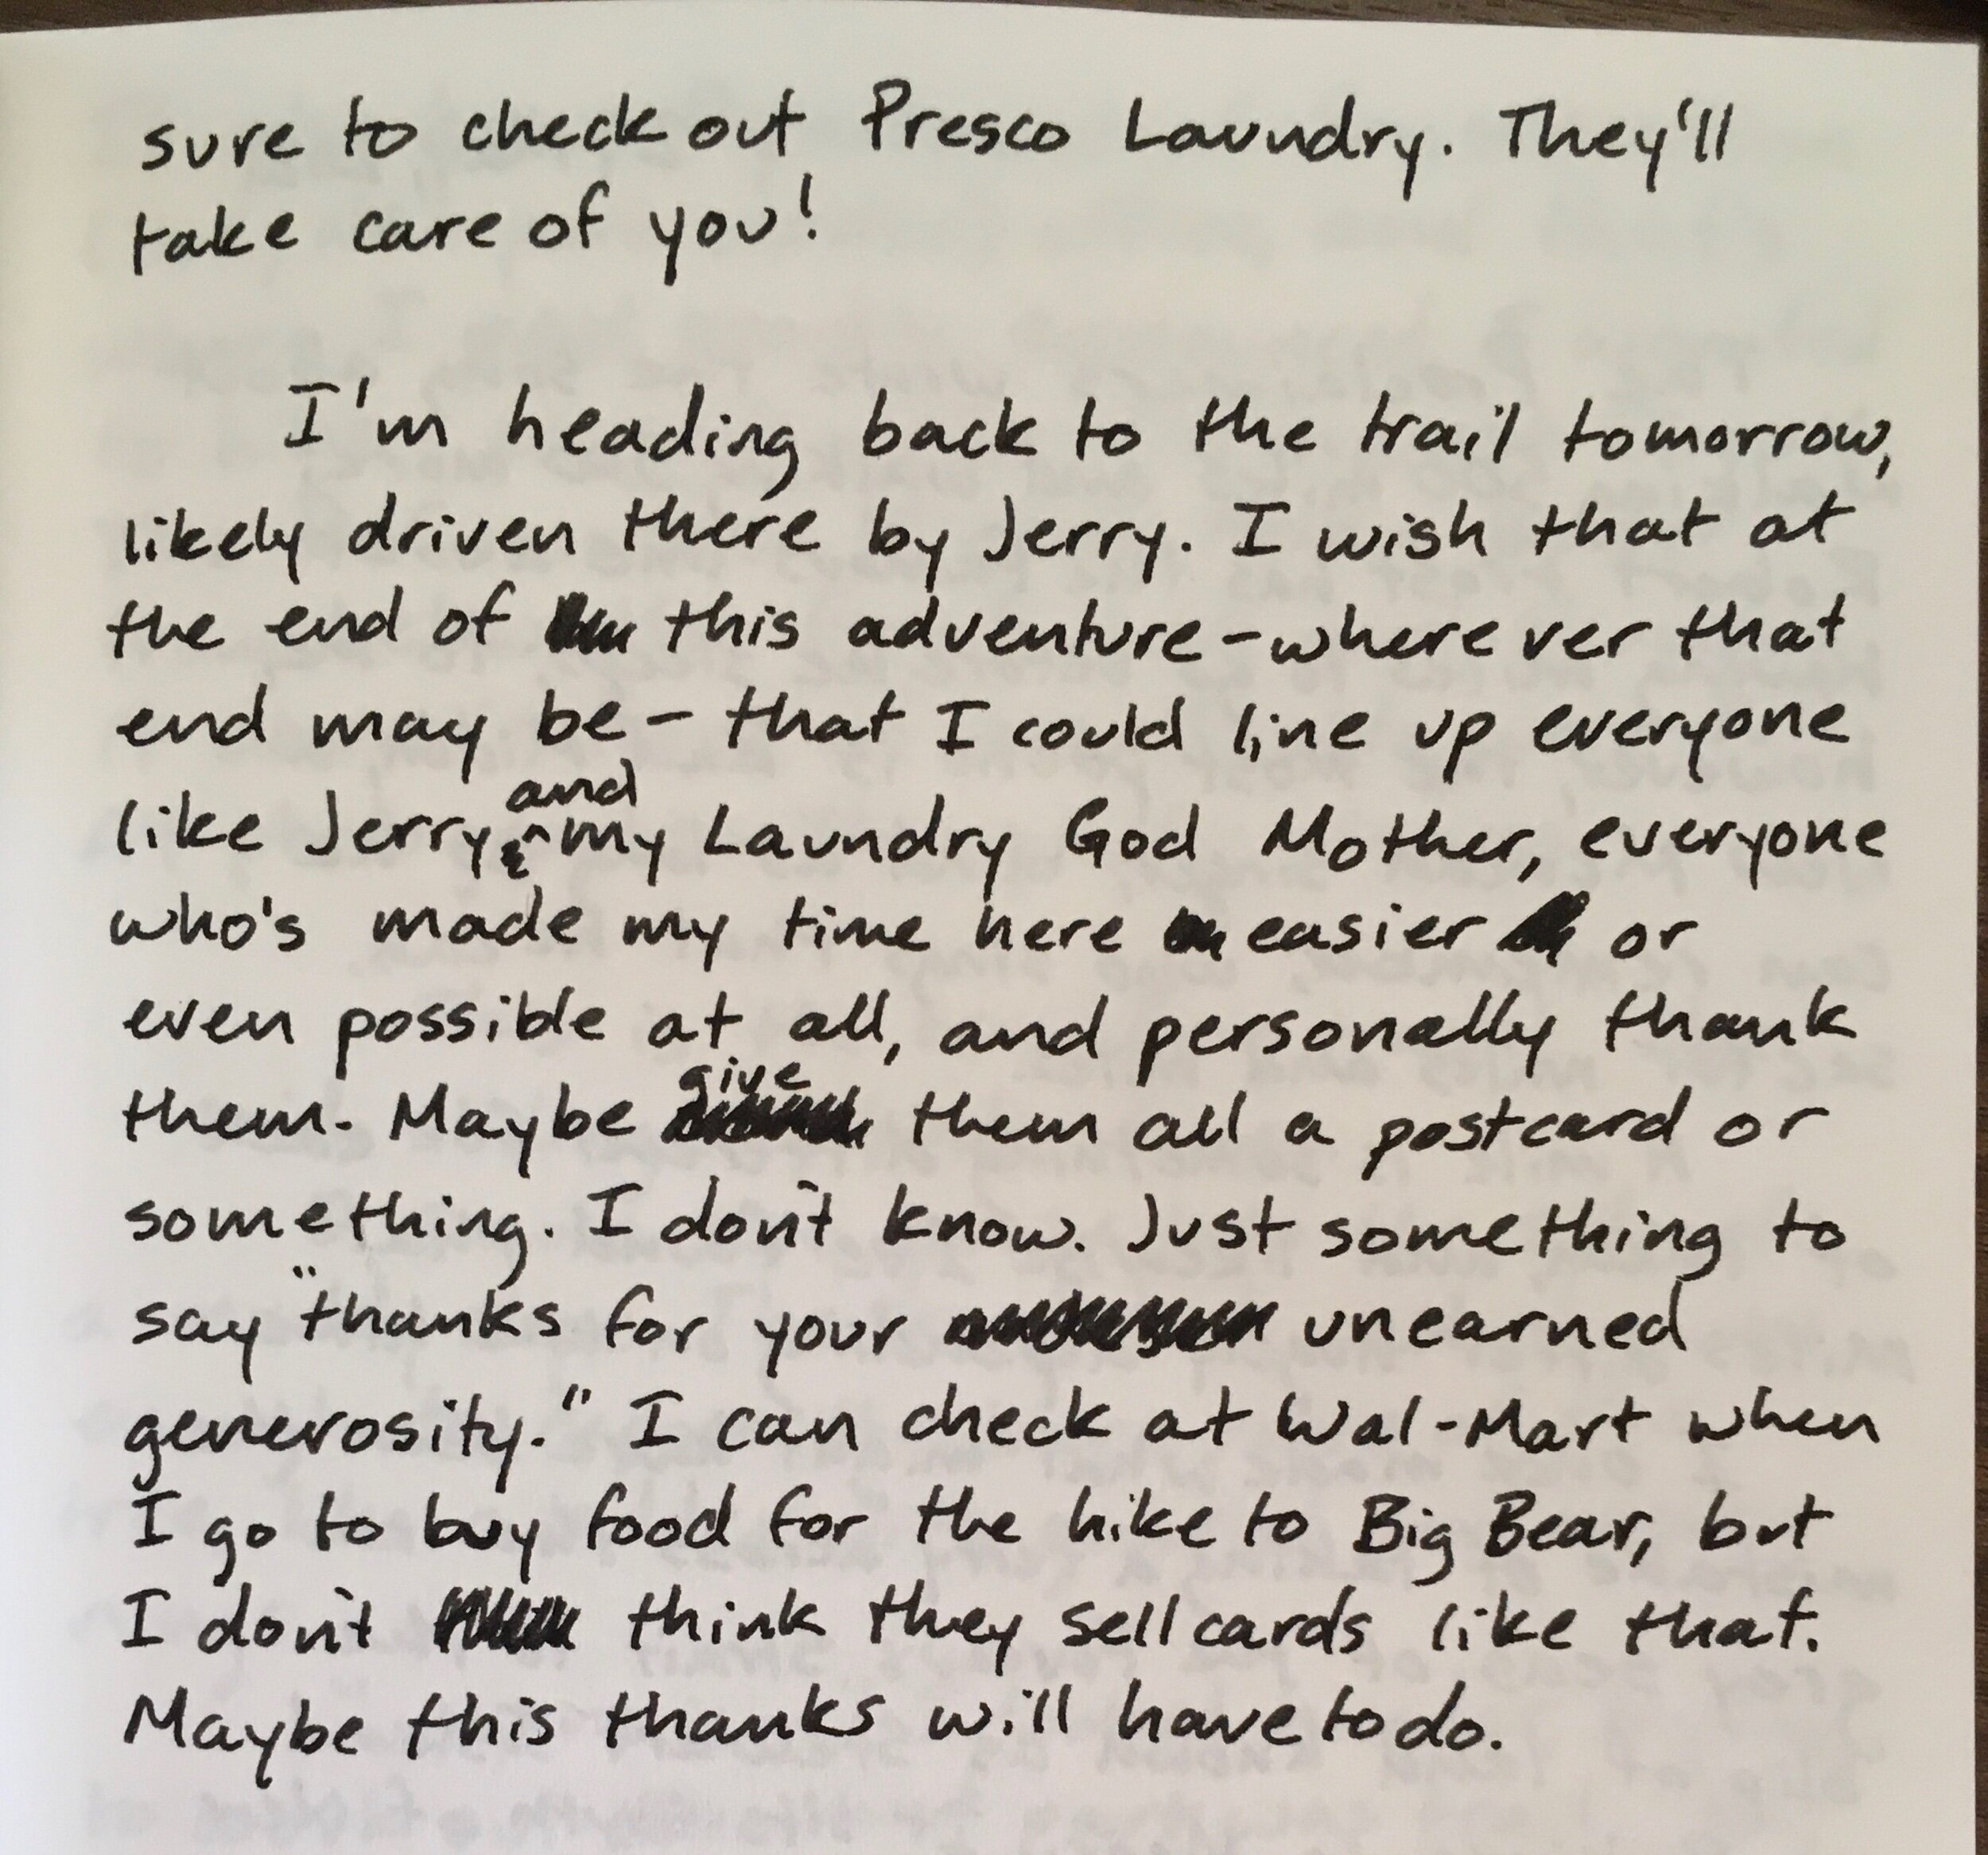 sure to check out Presco Laundry. They'll
take care of you!
I'm heading back to the trail tomorrow,
likely driven there by Jerry. I wish that at
the end of this adventure - wherever that
end may be - that I could line up everyone
like Jerry and my Laundry God Mother, everyone
who's made my time here easier or
even possible at all, and personally thank
them. Maybe give them all a postcard or
something. I don't know. Just something to
say "thanks for your unearned
generosity." I can check at Wal-Mart when
I go to buy food for the hike to Big Bear, but
I don't think they sell cards like that.
Maybe this thanks will have to do.